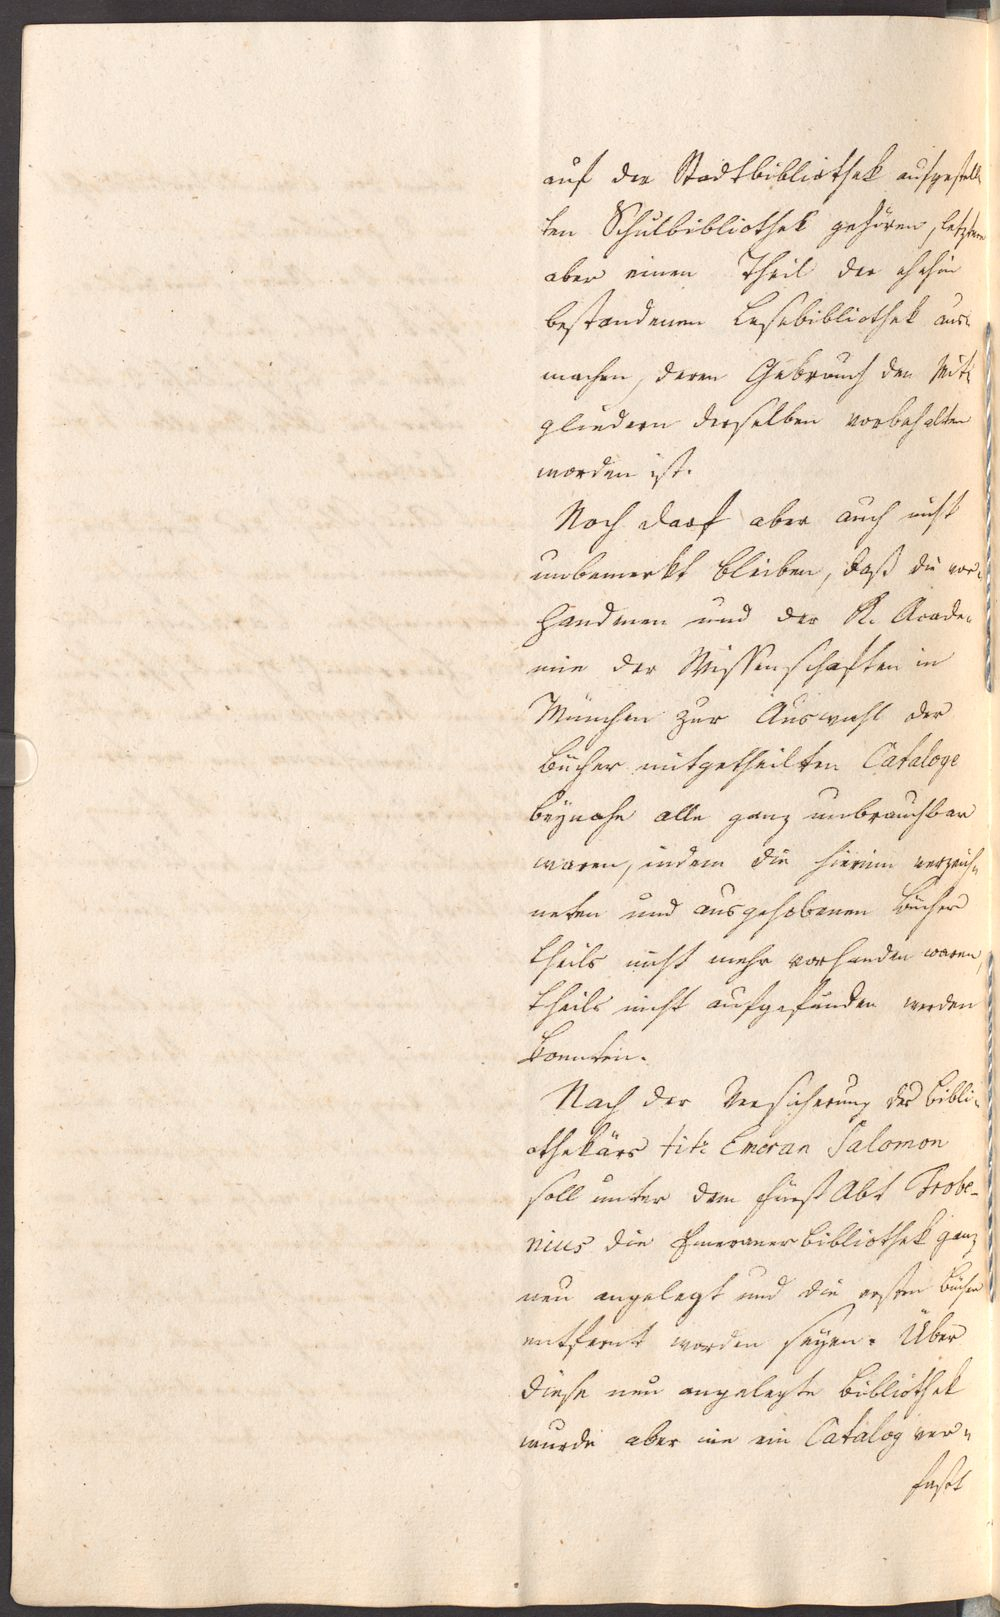 auf der Stadtbibliothek aufgestell-
ten Schulbibliothek gehören, letztere
aber einen Theil der ehehin
bestandenen Lesebibliothek aus-
machen, deren Gebrauch den Mit-
gliedern derselben vorbehalten
worden ist.
Noch darf aber auch nicht
unbemerkt bleiben, daß die vor-
handenen und der K. Acade-
mie der Wissenschaften in
München zur Auswahl der
Bücher mitgetheilten Cataloge
beynahe alle ganz unbrauchbar
waren, indem die hierinn verzeich-
neten und ausgehobenen Bücher
theils nicht mehr vorhanden waren,
theils nicht aufgefunden werden
konnten.
Nach der Versicherung des Bibli-
othekärs tit: Emeran Salomon
soll unter dem Fürst Abt Frobe-
nius die Emeraner Bibliothek ganz
neu angelegt und die ersten Bücher
entfernt worden seyen. Über
diese neu angelegte Bibliothek
wurde aber nie ein Catalog ver-
faßt